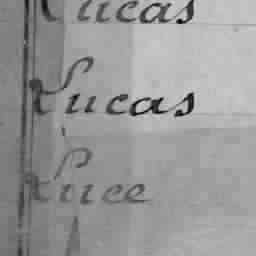 Lucas
Lucas
Luce